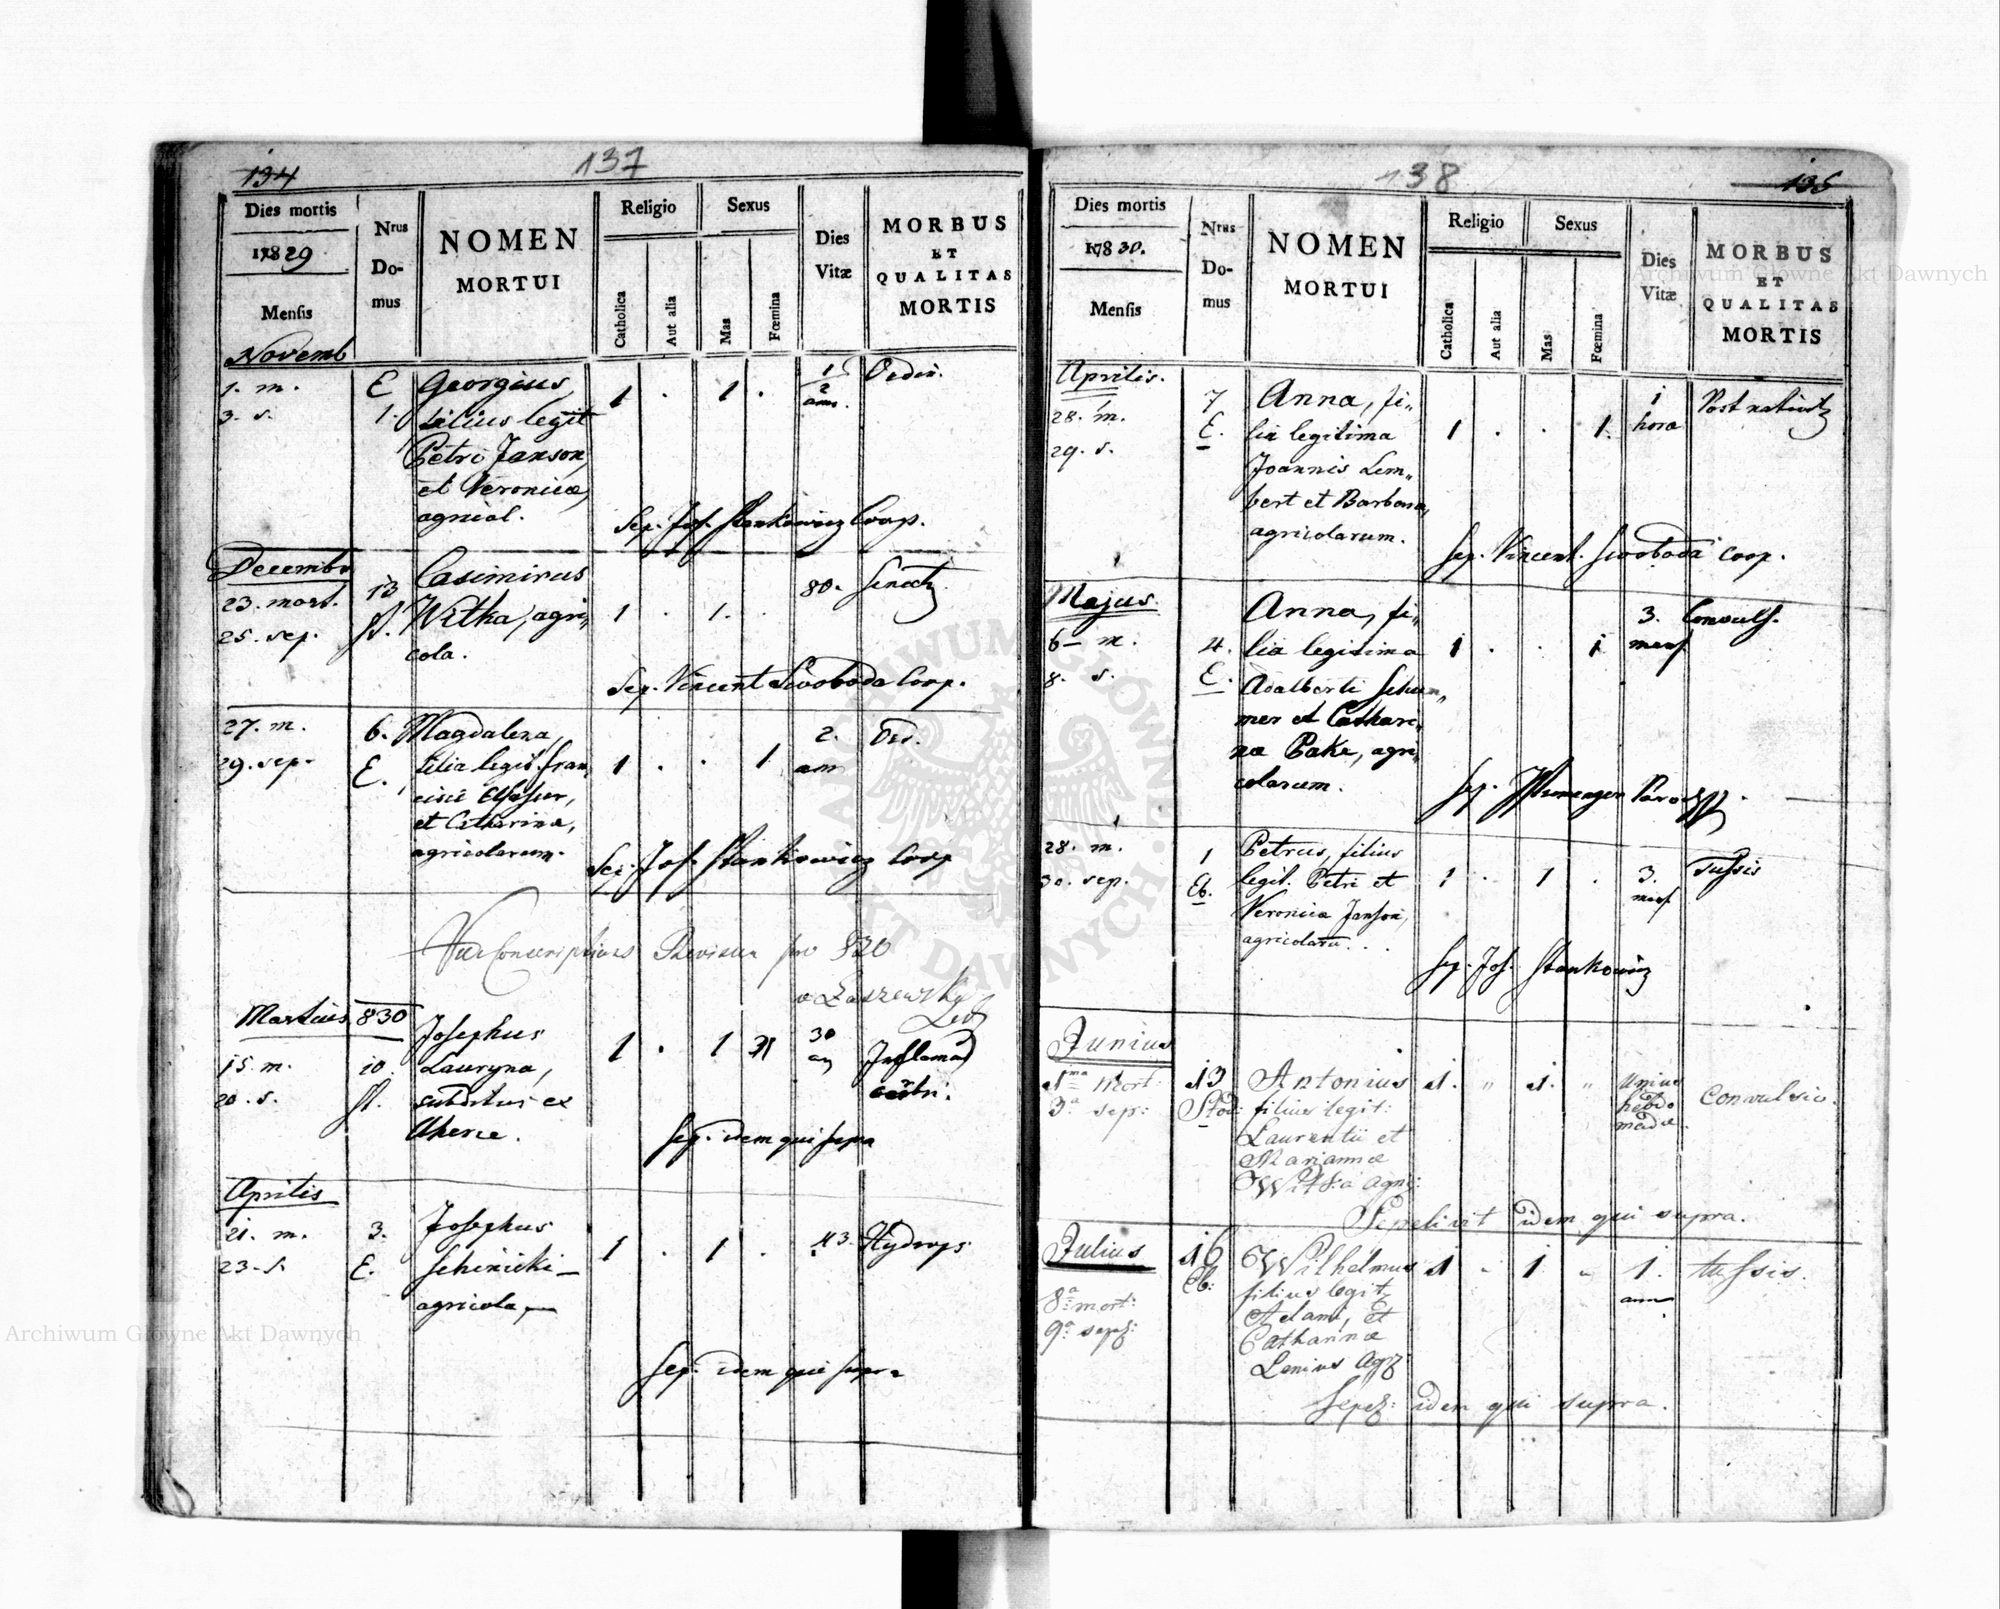 134
137
Dies mortis
1829
Mensis
Nrus
Do-
mus
NOMEN
MORTUI
Religio
Catholica
Aut alia
Sexus
Mas
Fœmina
Dies
Vitæ
MORBUS
ET
QUALITAS
MORTIS
Novemb
1. m.
3. s.
E
1.
Georgius,
filius legit
Petri Janson,
et Veronicæ,
agricol.
1 . 1 .
1/2
ann.
Sep. Jos. Stankowicz Coop.
Decembr
23. mort.
25. sep.
13
St.
Casimirus
Witka, agri„
cola.
1 . 1. .
80.
Sep. Vincent Swoboda Coop.
27. m.
29. sep.
6.
E.
Magdalena,
filia legit. Fran„
cisci
et Catharinæ,
agricolarum.
1 . . 1
2.
ann
Sep. Jos. Stankowicz Coop
Revisum pro 830
Martius 830
15. m.
20. s.
10
St.
Josephus
Lauryna,
subditus ex
1 . 1
30
an
Sep. idem qui supra
Aprilis
21. m.
23. s.
3.
E.
Josephus
agricola,
1 . 1 .
43.
Hydrops
Sep. idem qui supra
138
135
Dies mortis
1830.
Mensis
Nrus
Do-
mus
NOMEN
MORTUI
Religio
Catholica
Aut alia
Sexus
Mas
Fœmina
Dies
Vitæ
MORBUS
ET
QUALITAS
MORTIS
Aprilis.
28. m.
29. s.
7
E.
Anna, fi„
lia legitima
Joannis Lem„
bert et Barbaræ,
agricolarum.
1 . . 1.
1
hora
Sep. Vincent. Swoboda Coop.
Majus.
6 – m.
8. s.
4.
E.
Anna, fi„
lia legitima
Adalberti Schum„
mer et Cathari„
næ Pake, agri„
colarum.
1 . . 1
3.
mens
Convuls.
28. m.
30. sep.
1
Eb.
Petrus, filius
legit. Petri et
Veronicæ Janson,
1 . 1 .
3.
mens
Tussis
Sep. Jos. Stankowicz
Junius
1ma mort:
3a sep:
13
Stad:
Antonius
filius legit:
Laurentii et
Mariannæ
Witka agri:
1. „ 1. „
Unius
hebdo
madæ.
Convulsio.
Sepelivit idem qui supra.
Julius
8a mort:
9a sepel:
16
Eb:
Wilhelmus
filius legit
Adami, et
Catharinæ
Lenius Agr:
1 „ 1 „
1.
ann
tussis.
Sepel: idem qui supra.
Archiwum Główne Akt Dawnych
Archiwum Główne Akt Dawnych
ARCHIWUM GŁÓWNE AKT DAWNYCH